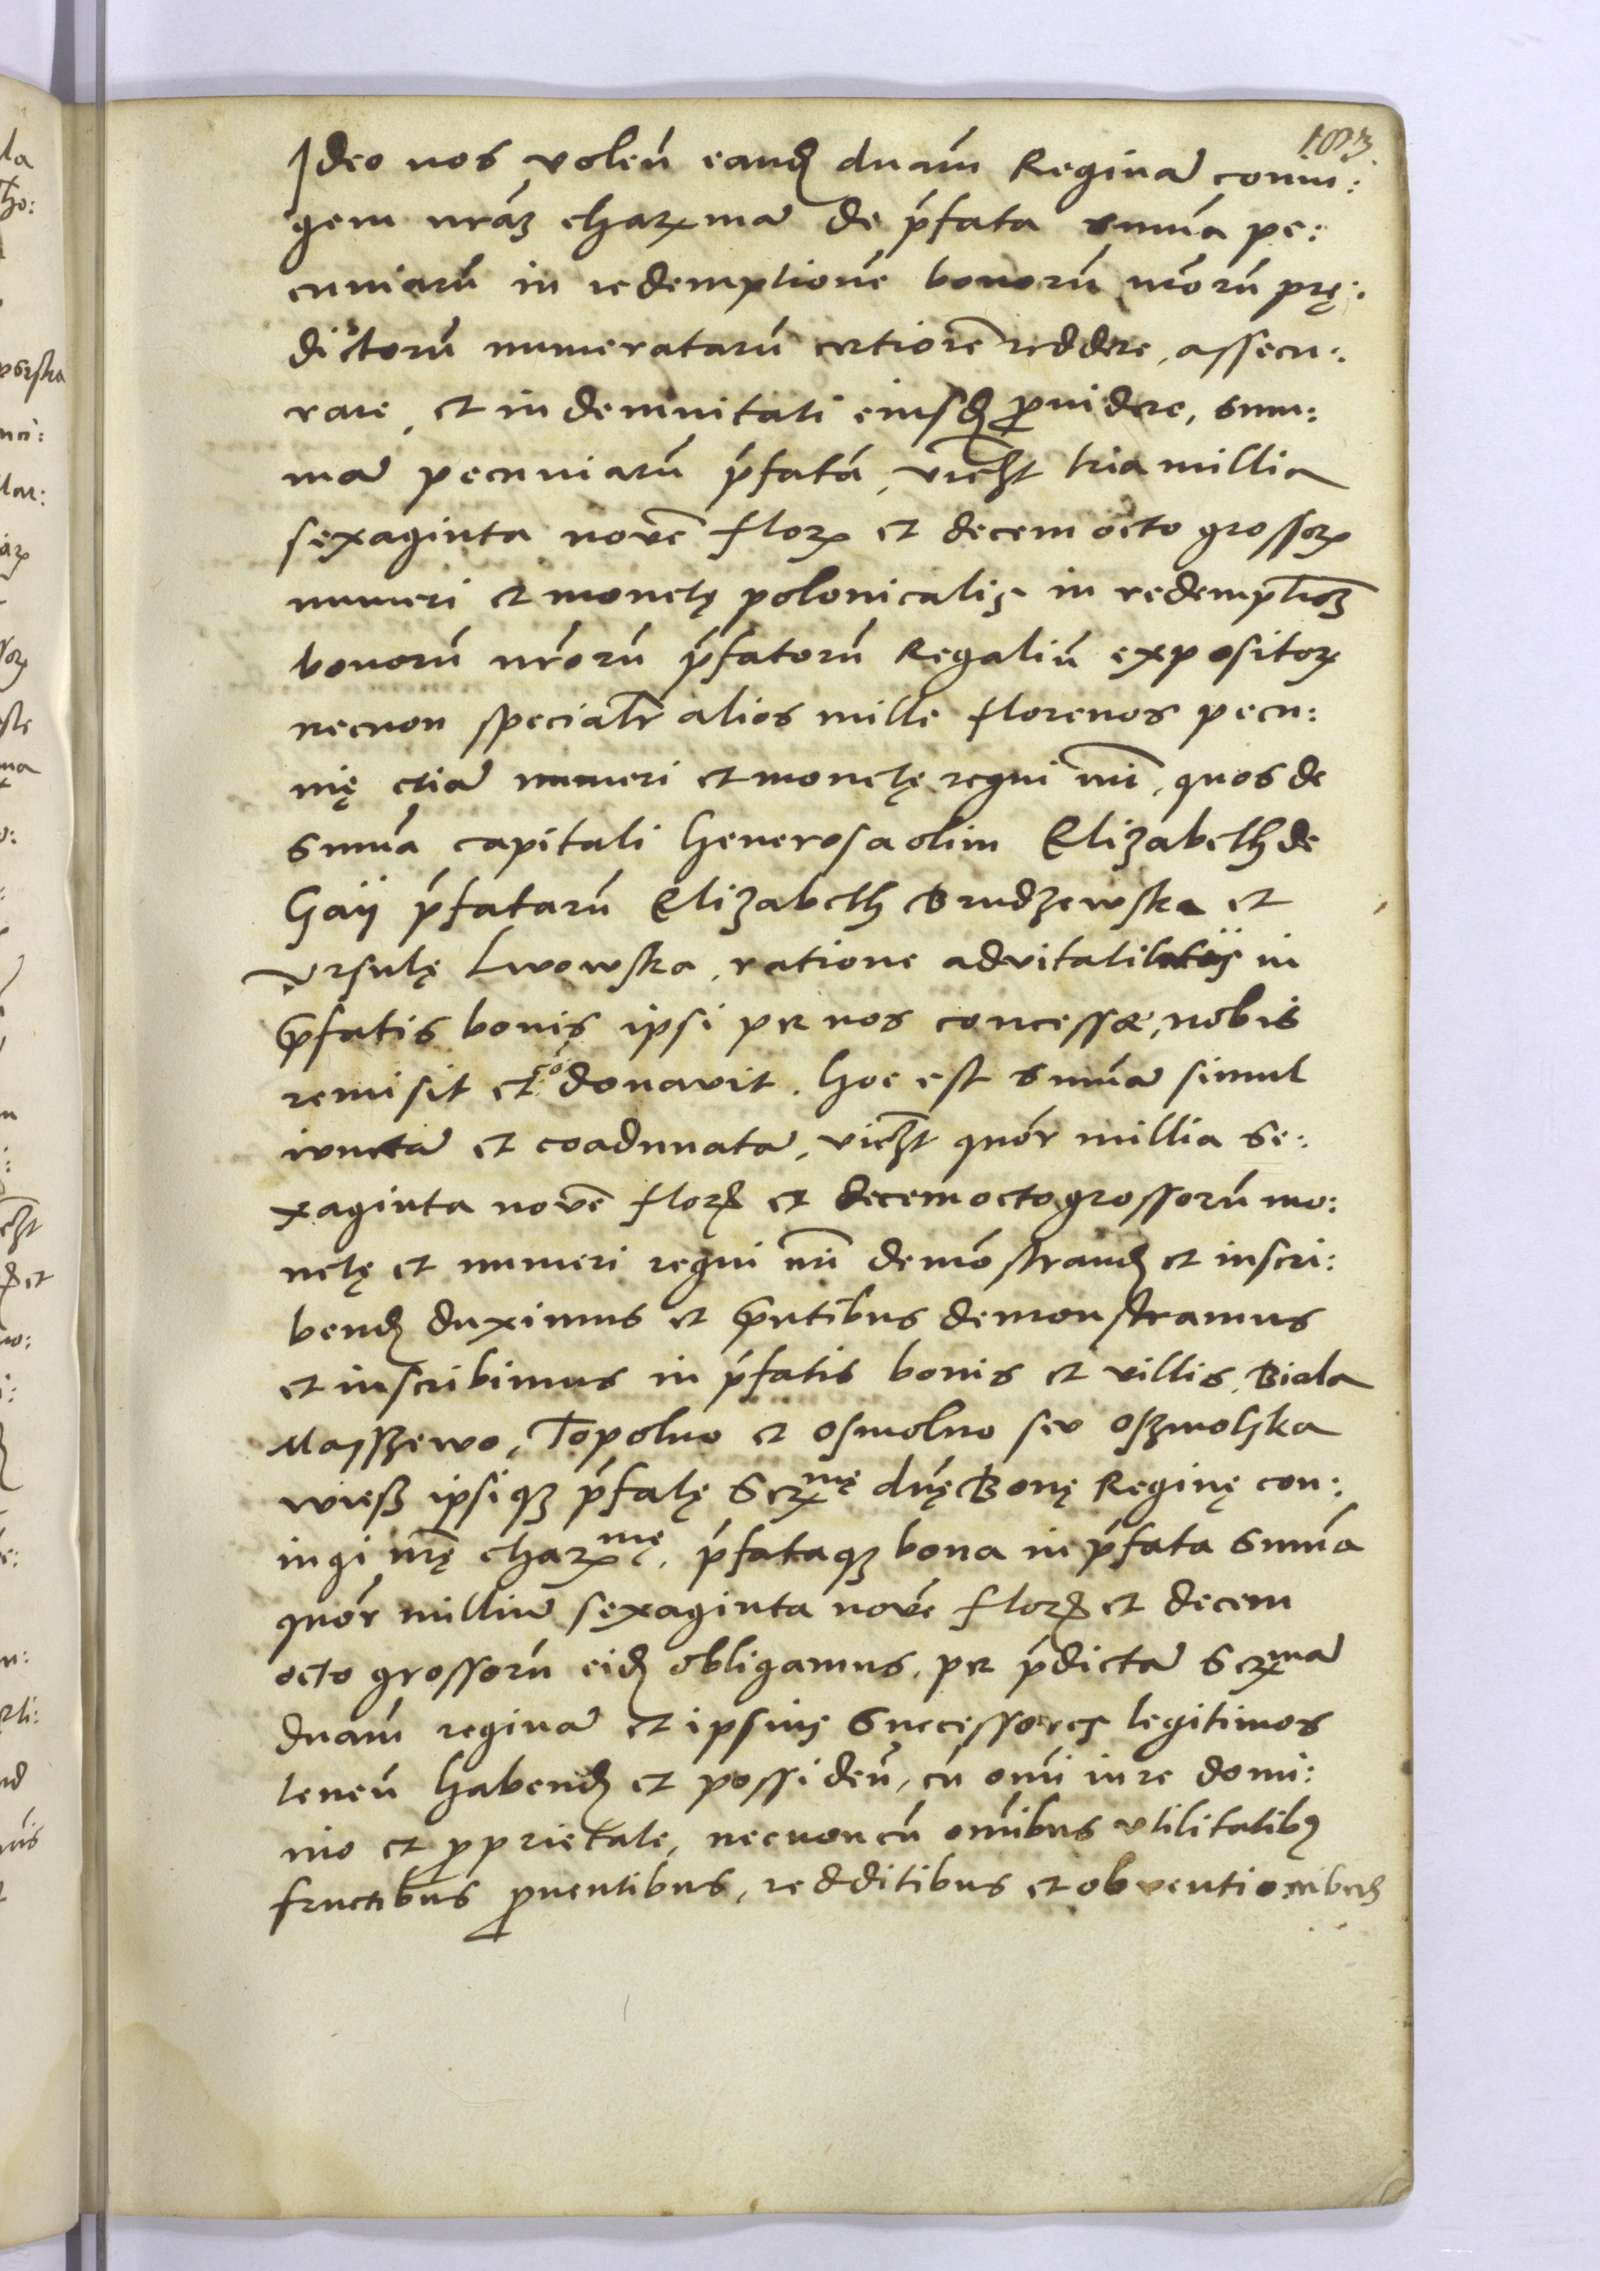 1023.
Ideo nos volen̄ eand̨ dnām Reginā coniu:
gem nrāꝫ chaꝝmā de p̄fata sum̄a pe:
cuniarū in redemptionē bonorū nr̄orū prę:
dictorū numeratarū certiorē reddere, assecu:
rare, et indemnitati eiusd̨ ꝓuidere, sum:
mā pecuniarū p̄fatā, videlꝫt tria millia
sexaginta novē floꝝ et decem octo grossoꝝ
numeri et monetę polonicalis in redemptioēꝫ
bonorū nr̄orū p̄fatorū Regaliū expositoꝝ
necnon specialr̄ alios mille florenos pecu:
nię etiā numeri et monetę regni nr̄i, quos de
sum̄a capitali Generosa olim Elizabeth de
Gaÿ p̄fatarū Elizabeth Brudzewska et
Vrsulę Lwowska, ratione advitalitatis in
p̄fatis bonis ipsi per nos concessæ, nobis
remisit et cō donavit. Hoc est sum̄ā simul
iunctā et coadunatā, videlꝫt quōr millia se:
xaginta novē floꝝ et decem octo grossorū mo:
netę et numeri regni nr̄i demōstrand̨ et inscri:
bend̨ duximus et p̄ntibus demonstramus
et inscribimus in p̄fatis bonis et villis, Biala
Mayszewo, Topolno et Osmolno seu Oszmolska
wiesß ipsiqꝫ p̄fatę Seꝝmę dnę Bonę Reginę con:
iugi nrę chaꝝmę, p̄fataqꝫ bona in p̄fata sum̄a
quōr milliū sexaginta novē floꝝ et decem
octo grossorū eid̨ obligamus, per p̄dictā Seꝝmā
dnām reginā et ipsius Successores legitimos
tenen̄ habend̨ et possiden̄, cū om̄i iure domi:
nio et ꝓprietate, necnon cū om̄ibus vtilitatibꝰ
fructibus ꝓuentibus, redditibus et obventionibus